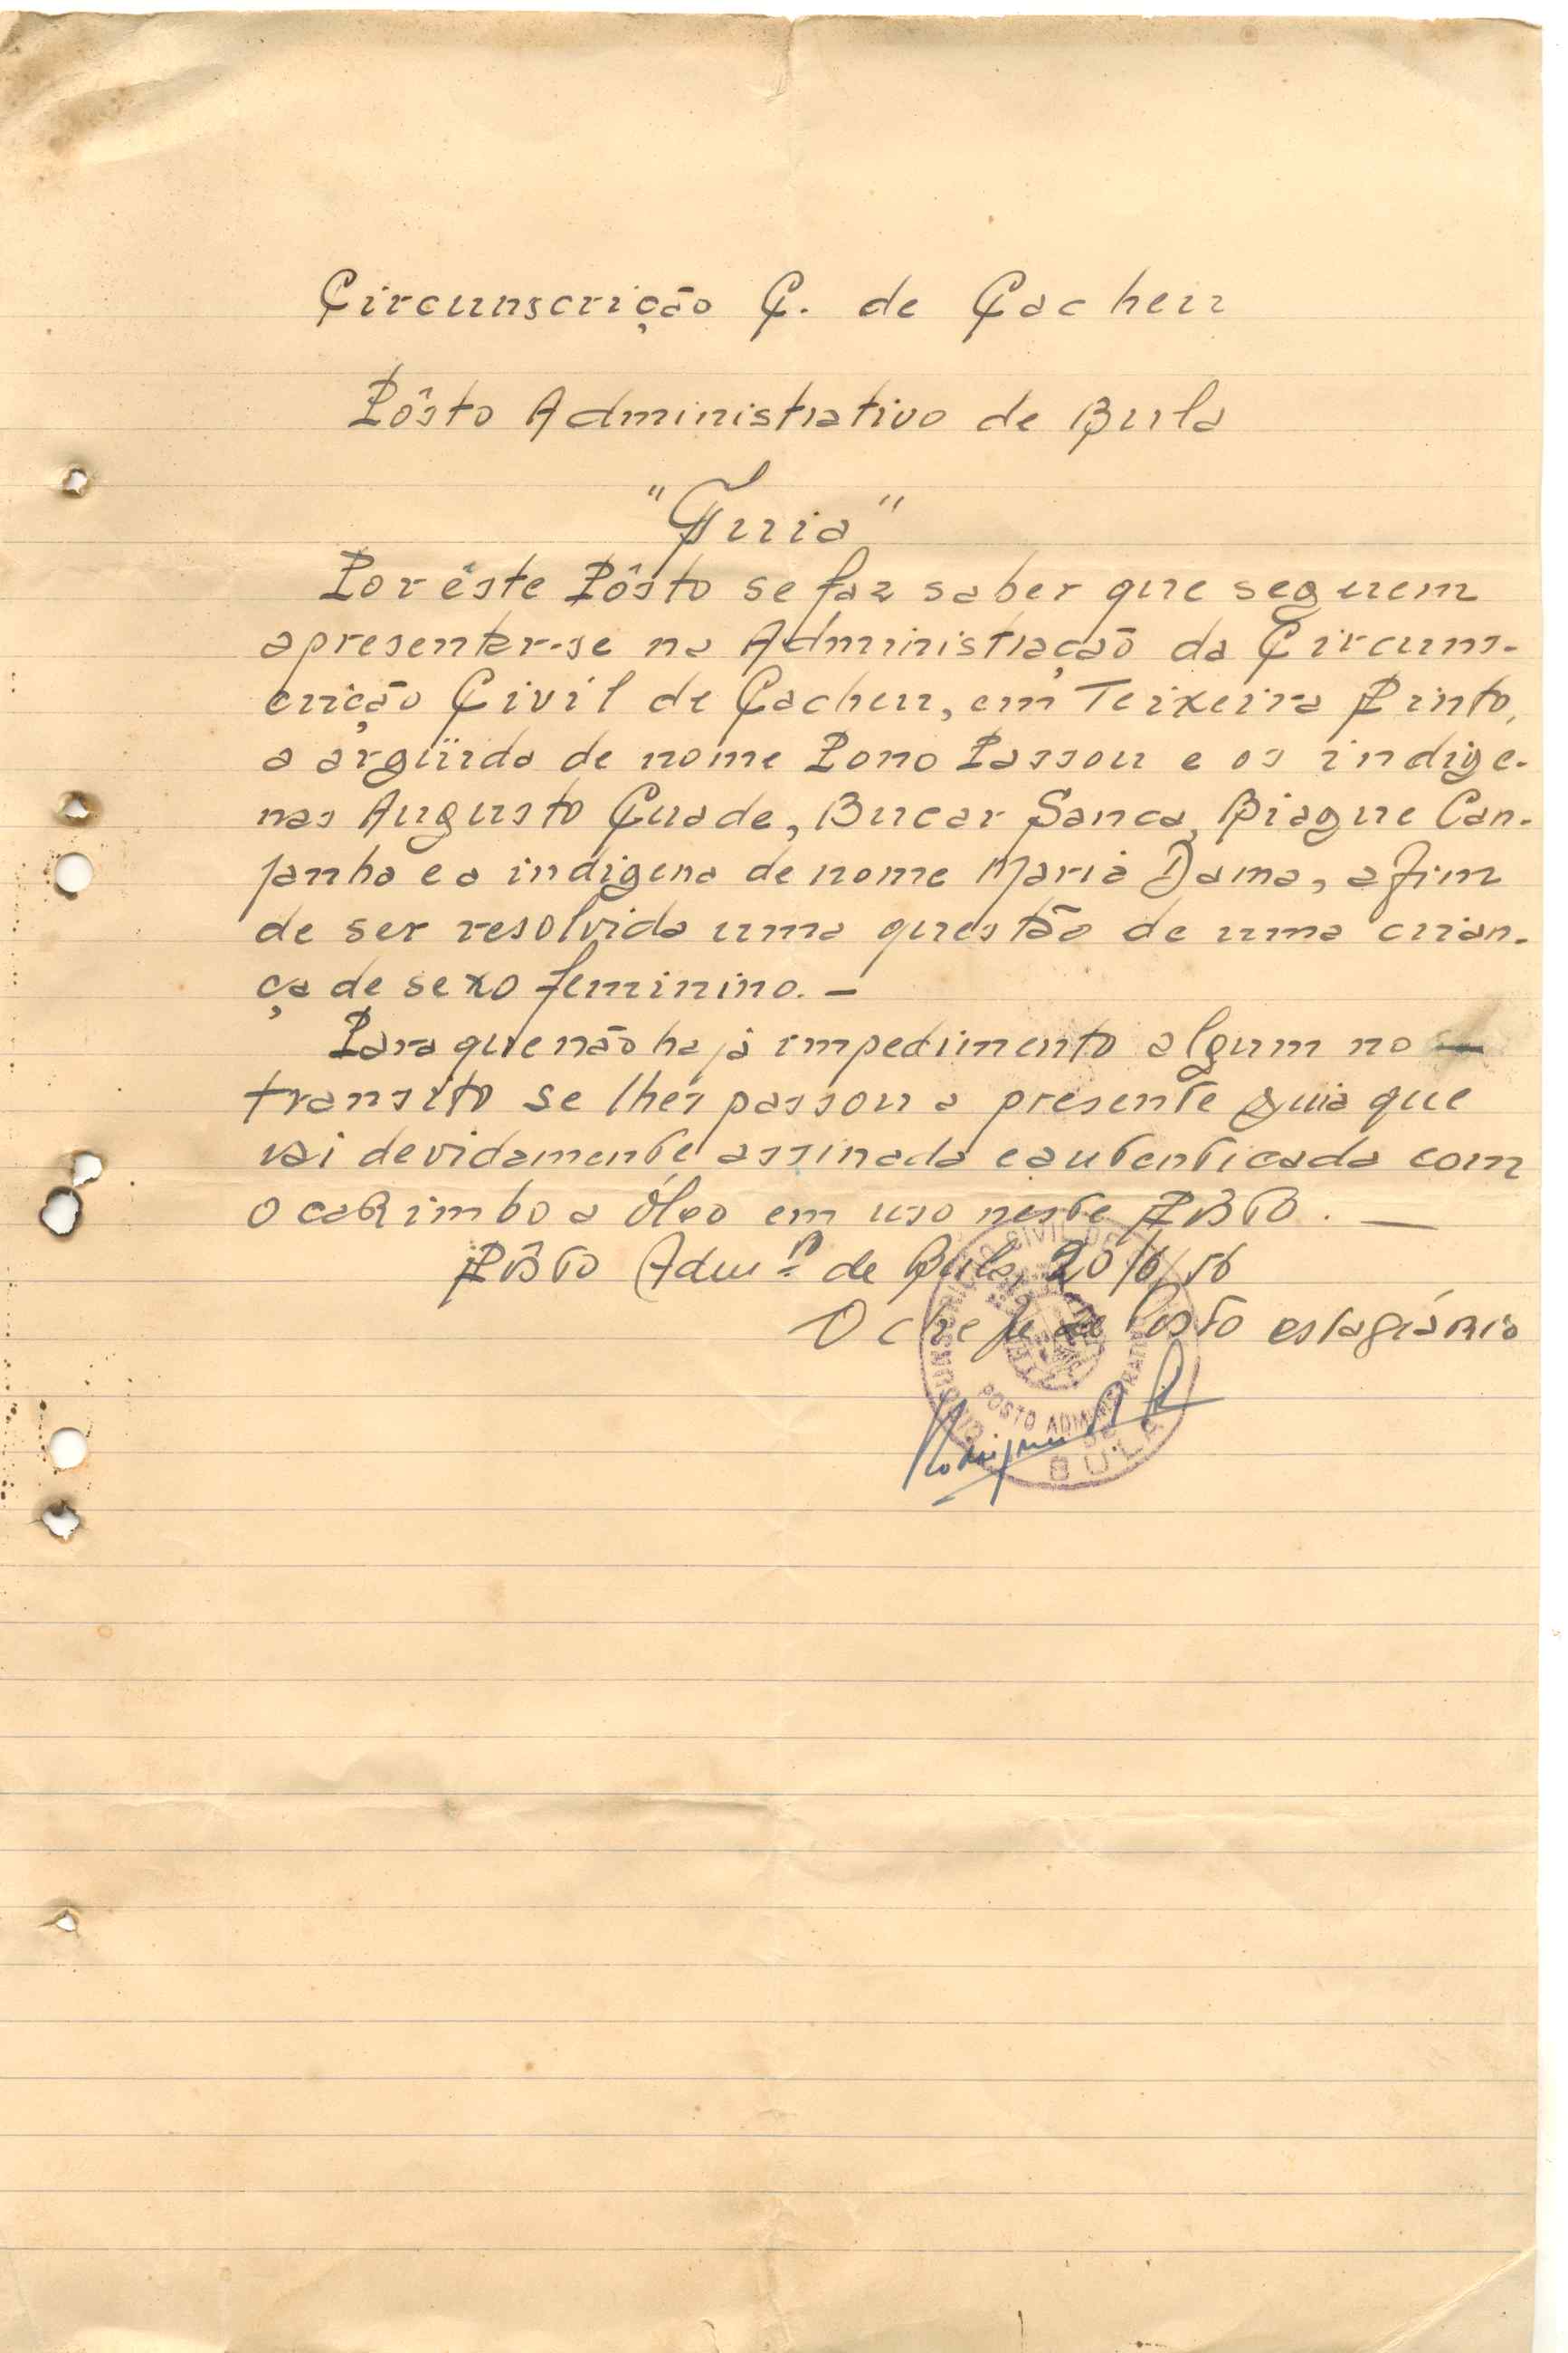 Circunscrição C. de Cacheu
Pôsto Administrativo de Bula
"Guia"
Por êste Pôsto se faz saber que seguem
apresentar-se na Administração da Circuns-
crição Civil de Cacheu, em Teixeira Pinto,
a argüida de nome Pono Passou e os indige-
nas Augusto Cuade, Bucar Sanca, Biague Can-
janha e a indigena de nome Maria Dama, afim
de ser resolvida uma questão de uma crian-
ça de sexo feminino. —
Para que não haja impedimento algum no —
transito se lhes passou a presente guia que
vai devidamente assinada e autenticada com
o carimbo a óleo em uso neste Pôsto. —
Pôsto Admº de Bula, 20/6/56
O chefe de Posto estagiário
POSTO ADMINISTRATIVO
BULA